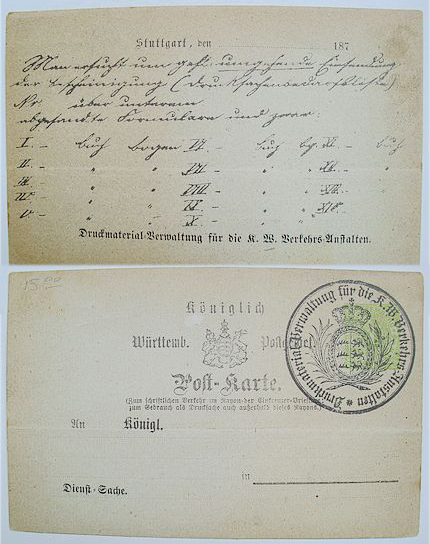 Stuttgart, den 187
Man ersucht um gefl. umgehende Einsendung
der Bescheinigung (Drucksachenbedarfsliste)
Nr. über unterm
abgesandte Formulare und zwar:
I. – Buch Bogen VI. – Buch Bg. XI. – Buch
II. – " " VII – " " XII. – "
III. " " VIII – " " XIII. – "
IV. " " IX – " " XIV. – "
V. – " " X. – "
Druckmaterial-Verwaltung für die K. W. Verkehrs-Anstalten.
15.00
Königlich
Württemb.
Post-Karte.
(Zum schriftlichen Verkehr im Rayon der Einkreuzer-Briefe
zum Gebrauch als Drucksache auch außerhalb dieses Rayons.)
An Königl.
in
Dienst-Sache.
Druckmaterial-Verwaltung für die K. W. Verkehrs-Anstalten